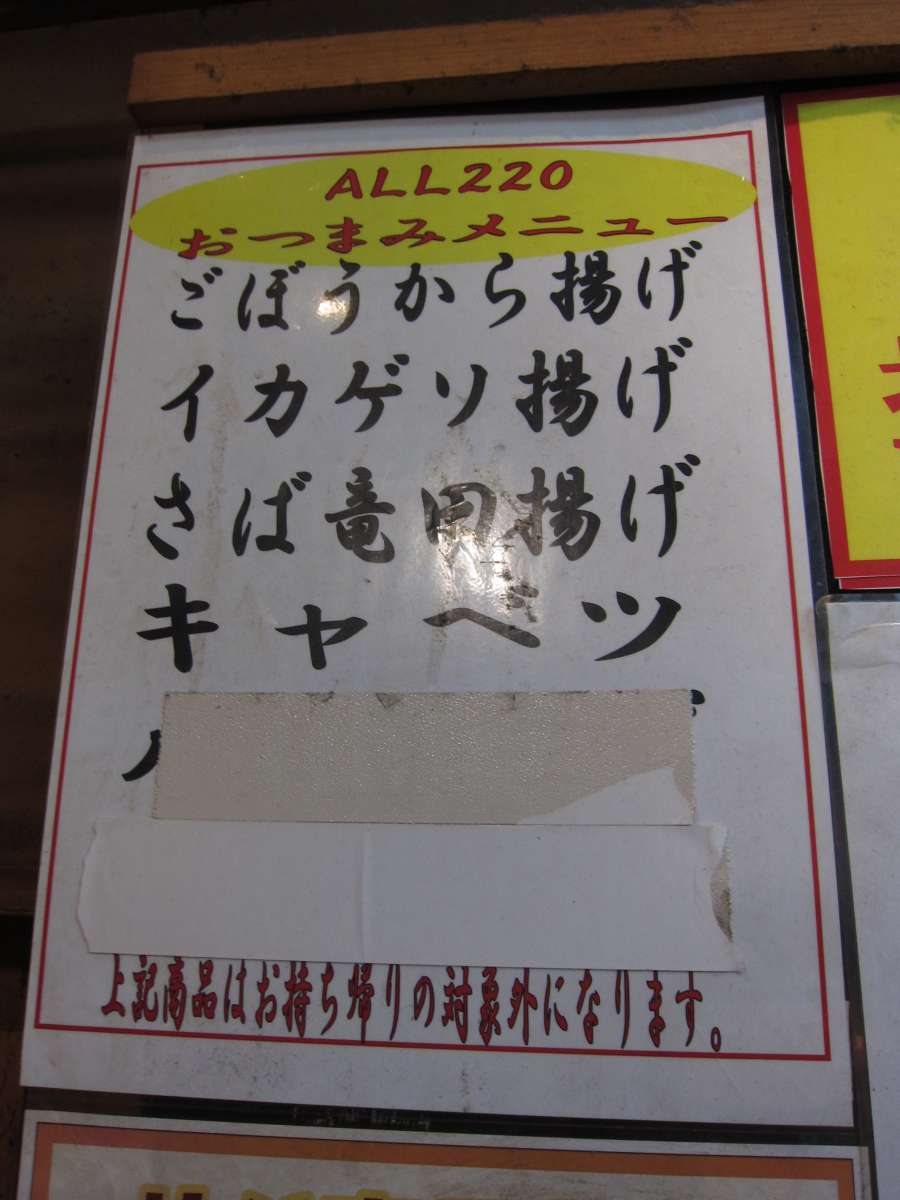 ALL220
おつまみメニュー
ごぼうから揚げ
イカゲソ揚げ
さば竜田揚げ
キャベツ
上記商品はお持ち帰りの対象外になります。